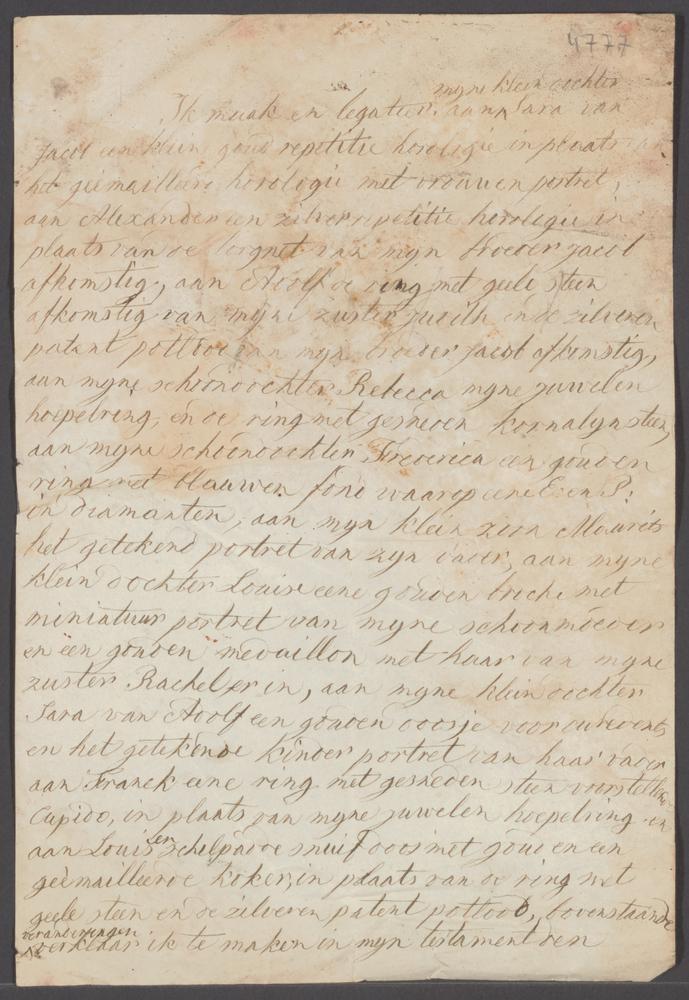 4777
myne klein dochter
Ik maak en legateer aan Sara van
Jacob een klein goud repetitie horologie in plaats van
het geëmailleerd horologie met vrouwen portret,
aan Alexander een zilver repetitie horologie in
plaats van de lorgnet van myn broeder Jacob
afkomstig, aan Adolf de ring met geele steen
afkomstig van myne zuster Judith en de zilveren
patent potlood van myn broeder Jacob afkomstig,
aan myne schoondochter Rebecca myne juwelen
hoepelring, en de ring met gesneden kornalyn steen,
aan myne schoondochter Frederica een gouden
ring met blauwen fond waarop eene E en P:
in diamanten, aan myn klein zoon Maurits
het getekend portret van zyn vader, aan myne
klein dochter Louise eene gouden broche met
miniatuur portret van myne schoonmoeder
en een gouden medaillon met haar van myne
zuster Rachel er in, aan myne klein dochter
Sara van Adolf een gouden doosje voor
en het getekende kinder portret van haar vader
aan Franck eene ring met gesneden steen voorstellende
Cupido, in plaats van myne juwelen hoepelring en
aan Louis een schelpadde snuifdoos met gouden een
geëmailleerde koker, in plaats van de ring met
geele steen en de zilveren patent potlood, bovenstaande
veranderingen
verklaar ik te maken in myn testament den